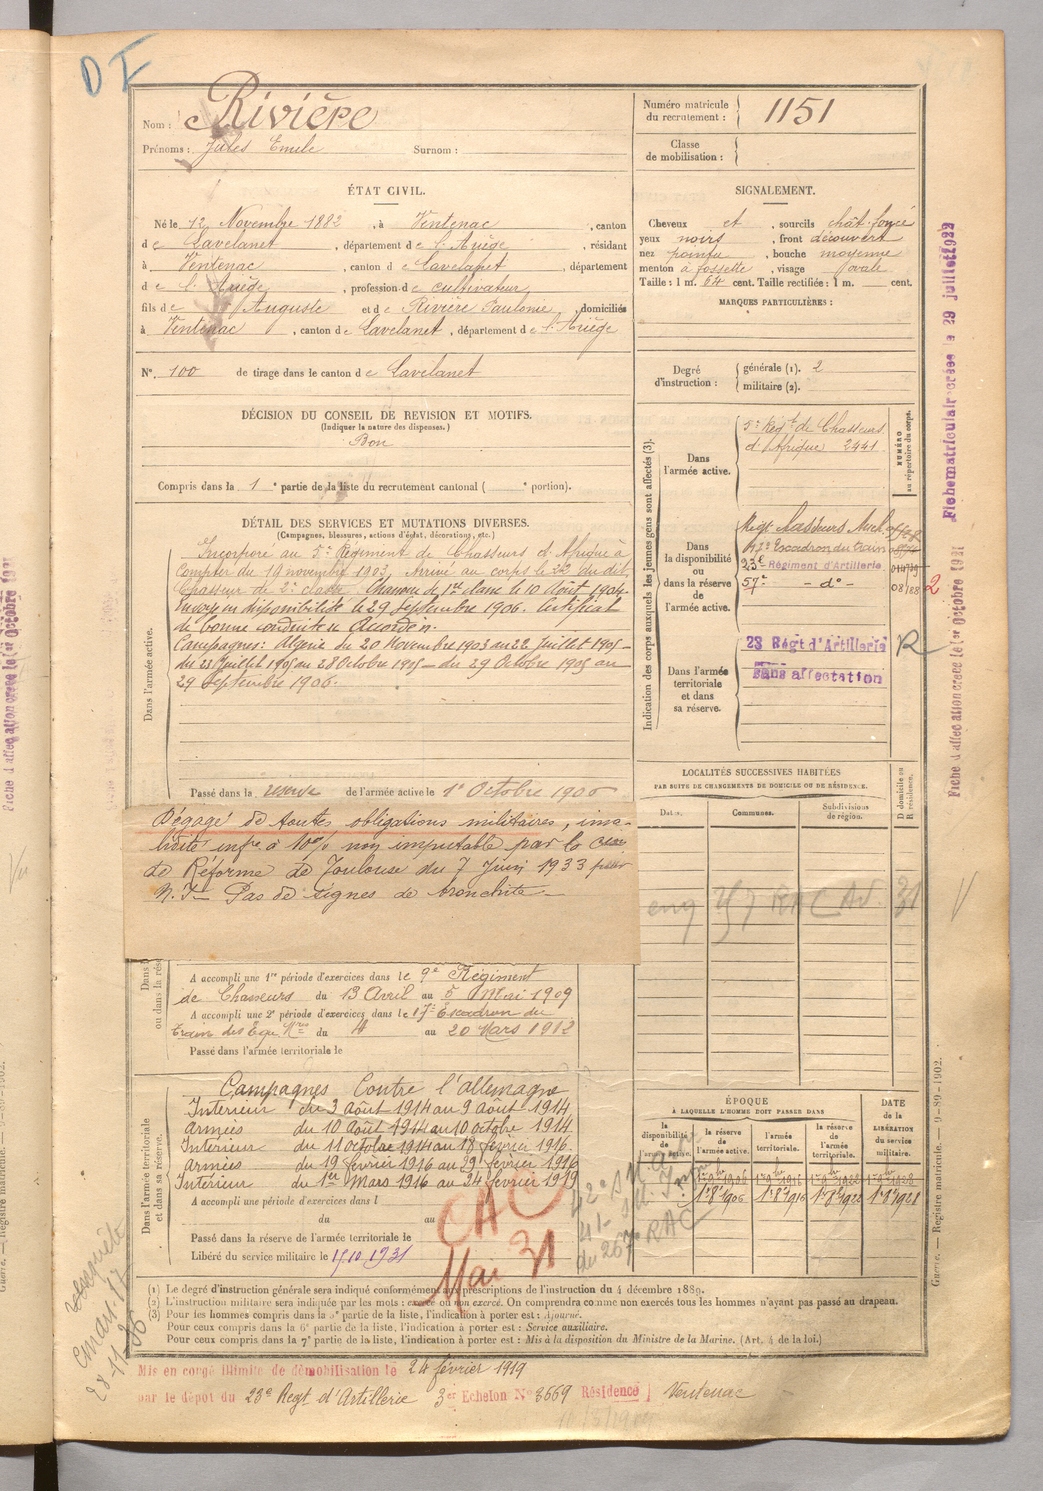 D I
Nom : Rivière
Prénoms : Jules Emile Surnom :
Numéro matricule du recrutement : 1151
Classe de mobilisation :
ÉTAT CIVIL.
Né le 12 Novembre 1882, à Ventenac, canton
de Lavelanet, département de l'Ariège, résidant
à Ventenac, canton de Lavelanet, département
de l'Ariège, profession de cultivateur
fils de Auguste et de Rivière Paulonie, domiciliés
à Ventenac, canton de Lavelanet, département de l'Ariège
N° 100 de tirage dans le canton de Lavelanet
SIGNALEMENT.
Cheveux et, sourcils chât. foncé
yeux noirs, front découvert
nez pointu, bouche moyenne
menton à fossette, visage ovale
Taille : 1 m. 64 cent. Taille rectifiée : 1 m. cent.
MARQUES PARTICULIÈRES :
Degré d'instruction : générale (1). 2
militaire (2).
DÉCISION DU CONSEIL DE REVISION ET MOTIFS.
(Indiquer la nature des dispenses.)
Bon
Compris dans la 1e partie de la liste du recrutement cantonal ( e portion).
DÉTAIL DES SERVICES ET MUTATIONS DIVERSES.
(Campagnes, blessures, actions d'éclat, décorations, etc.)
Dans l'armée active.
Incorporé au 5e Régiment de Chasseurs d'Afrique à
compter du 19 novembre 1903. Arrivé au corps le 22 du dit,
Chasseur de 2e classe. Chasseur de 1re classe le 10 Août 1904.
Envoyé en disponibilité le 29 Septembre 1906. Certificat
de bonne conduite « Accordé ».
Campagnes : Algérie du 20 Novembre 1903 au 22 Juillet 1905 -
du 23 Juillet 1905 au 28 Octobre 1905 - du 29 Octobre 1905 au
29 Septembre 1906.
Passé dans la réserve de l'armée active le 1er Octobre 1906
Indication des corps auxquels les jeunes gens sont affectés (3).
NUMÉRO au répertoire du corps.
Dans l'armée active.
5e Régt de Chasseurs
d'Afrique 2441
Dans la disponibilité ou dans la réserve de l'armée active.
17e Escadron du train
23e Régiment d'Artillerie
57e - do -
08/88 2
Dans l'armée territoriale et dans sa réserve.
23 Régt d'Artillerie R
Sans affectation
Fiche matriculair créée le 29 juillet 1922
Fiche d'affectation créée le 1er Octobre 1921
Dégagé de toutes obligations militaires, inva-
lidité infre à 10% non imputable par la Con
de Réforme de Toulouse du 7 Juin 1933 pour
N. I - Pas de signes de bronchite -
LOCALITÉS SUCCESSIVES HABITÉES
PAR SUITE DE CHANGEMENTS DE DOMICILE OU DE RÉSIDENCE.
Dates. Communes. Subdivisions de région. D domicile ou R résidence.
A accompli une 1re période d'exercices dans le 9e Régiment
de Chasseurs du 13 Avril au 5 Mai 1909
A accompli une 2e période d'exercices dans le 17e Escadron du
train des Equ. Mres du 4 au 20 Mars 1912
Passé dans l'armée territoriale le
Dans l'armée territoriale et dans sa réserve.
Campagnes Contre l'allemagne
Intérieur du 3 Août 1914 au 9 Août 1914
Armées du 10 Août 1914 au 10 octobre 1914
Intérieur du 11 Octobre 1914 au 18 février 1916
Armées du 19 février 1916 au 29 février 1916
Intérieur du 1er Mars 1916 au 24 février 1919
A accompli une période d'exercices dans l
du au
Passé dans la réserve de l'armée territoriale le
Libéré du service militaire le 15.10.1931
CAC
Mai 31
ÉPOQUE
À LAQUELLE L'HOMME DOIT PASSER DANS
la disponibilité de l'armée active. la réserve de l'armée active. l'armée territoriale. la réserve de l'armée territoriale.
DATE de la LIBÉRATION du service militaire.
1er 8bre 1906 1er 8bre 1916 1er 8bre 1922 1er 8bre 1928
(1) Le degré d'instruction générale sera indiqué conformément aux prescriptions de l'instruction du 4 décembre 1889.
(2) L'instruction militaire sera indiquée par les mots : exercé ou non exercé. On comprendra comme non exercés tous les hommes n'ayant pas passé au drapeau.
(3) Pour les hommes compris dans la 5e partie de la liste, l'indication à porter est : Ajourné.
Pour ceux compris dans la 6e partie de la liste, l'indication à porter est : Service auxiliaire.
Pour ceux compris dans la 7e partie de la liste, l'indication à porter est : Mis à la disposition du Ministre de la Marine. (Art. 4 de la loi.)
Mis en congé illimité de démobilisation le 24 février 1919
par le dépôt du 23e Régt d'Artillerie 3er Echelon N° 3669 Résidence Ventenac
Guerre. — Registre matricule. — 9-89-1902.